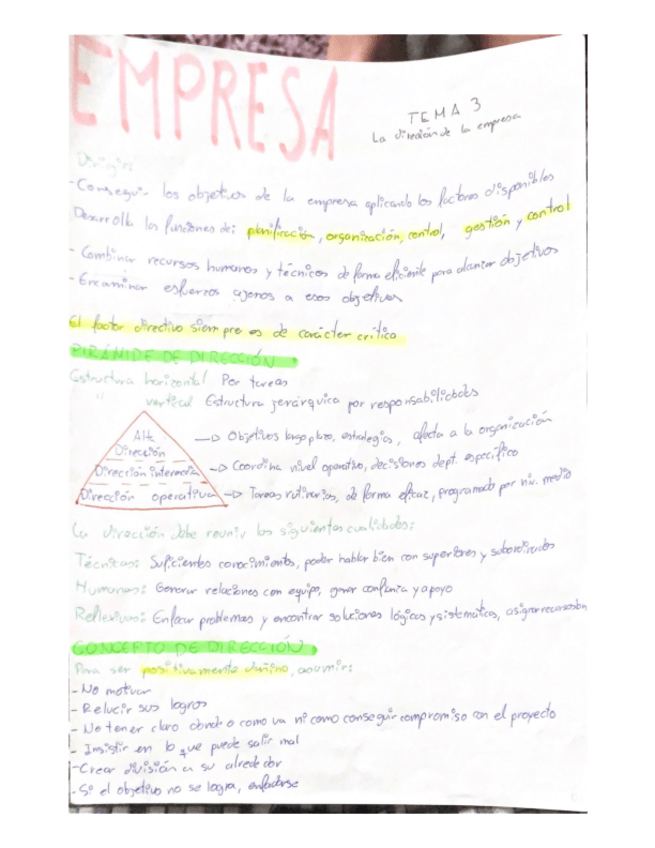 EMPRESA
TEMA 3
La dirección de la empresa
Dirigir:
- Conseguir los objetivos de la empresa aplicando los factores disponibles
Desarrolla las funciones de: planificación, organización, control, gestión y control
- Combinar recursos humanos y técnicos de forma eficiente para alcanzar objetivos
- Encaminar esfuerzos ajenos a esos objetivos
El factor directivo siempre es de carácter crítico
PIRÁMIDE DE DIRECCIÓN
Estructura horizontal Por tareas
" vertical Estructura jerárquica por responsabilidades
Alta
Dirección
→ Objetivos largo plazo, estrategias, afecta a la organización
Dirección intermedia → Coordina nivel operativo, decisiones dept. específico
Dirección operativa → Tareas rutinarias, de forma eficaz, programado por niv. medio
La dirección debe reunir las siguientes cualidades:
Técnicas: Suficientes conocimientos, poder hablar bien con superiores y subordinados
Humanas: Generar relaciones con equipo, ganar confianza y apoyo
Reflexivas: Enfocar problemas y encontrar soluciones lógicas y sistemáticas, asignar recursos
CONCEPTO DE DIRECCIÓN
Para ser positivamente dañino, asumir:
- No motivar
- Relucir sus logros
- No tener claro donde o como va ni como conseguir compromiso con el proyecto
- Insistir en lo que puede salir mal
- Crear división a su alrededor
- Si el objetivo no se logra, enfadarse